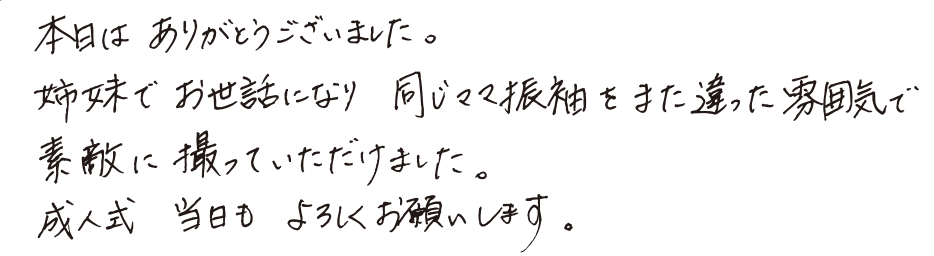 本日は ありがとうございました。
姉妹で お世話になり 同じママ振袖を また違った雰囲気で
素敵に 撮っていただけました。
成人式 当日も よろしくお願いします。